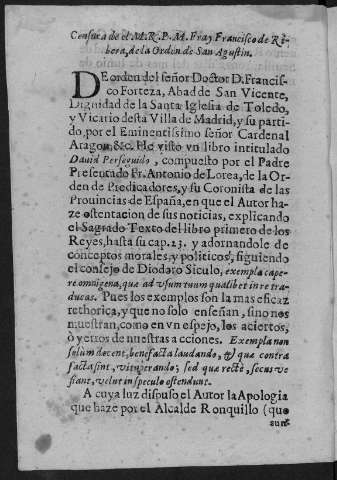 Censura de el M. R. P. M. Fray Francisco de Ri-
bera, de la Orden de San Agustin.
DE orden del señor Doctor D. Francis-
co Forteza, Abad de San Vicente,
Dignidad de la Santa Iglesia de Toledo,
y Vicario desta Villa de Madrid, y su parti-
do, por el Eminentissimo señor Cardenal
Aragon, &c. He visto vn libro intitulado
David Perseguido, compuesto por el Padre
Presentado Fr. Antonio de Lorea, de la Or-
den de Predicadores, y su Coronista de las
Provincias de España, en que el Autor ha-
ze ostentacion de sus noticias, explicando
el Sagrado Texto del libro primero de los
Reyes, hasta su cap. 23. y adornandole de
conceptos morales, y politicos, siguiendo
el consejo de Diodoro Siculo, exempla cape-
re omnigena, quæ ad vsum tuum qualibet in re tra-
ducas. Pues los exemplos son la mas eficaz
rethorica, y que no solo enseñan, sino nos
muestran, como en vn espejo, los aciertos,
ò yerros de nuestras acciones. Exempla non
solùm decent, benefacta laudando, & quæ contra
facta sint, vituperando; sed quæ rectè, secus ve
fiant, velut in speculo ostendunt.
A cuya luz dispuso el Autor la Apologia
que haze por el Alcalde Ronquillo (que
aun-